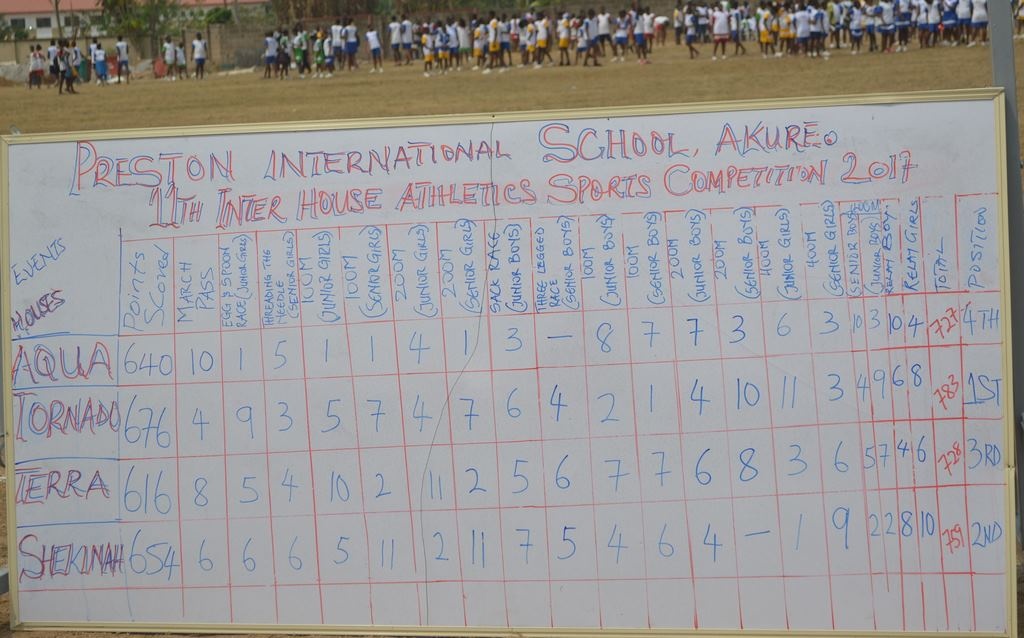 PRESTON INTERNATIONAL SCHOOL, AKURE.
11TH INTER HOUSE ATHLETICS SPORTS COMPETITION 2017
EVENTS
HOUSES
Points Scored
MARCH PASS
EGG & SPOON RACE (JUNIOR GIRLS)
THREADING THE NEEDLE (SENIOR GIRLS)
100M (JUNIOR GIRLS)
100M (SENIOR GIRLS)
200M (JUNIOR GIRLS)
200M (SENIOR GIRLS)
SACK RACE (JUNIOR BOYS)
THREE LEGGED RACE (SENIOR BOYS)
100M (JUNIOR BOYS)
100M (SENIOR BOYS)
200M (JUNIOR BOYS)
200M (SENIOR BOYS)
400M (JUNIOR GIRLS)
400M (SENIOR GIRLS)
(SENIOR BOYS)
(JUNIOR BOYS)
RELAY BOY.
RELAY GIRLS
TOTAL
POSITION
AQUA 640 10 1 5 1 1 4 1 3 — 8 7 7 3 6 3 10 3 10 4 727 4TH
TORNADO 676 4 9 3 5 7 4 7 6 4 2 1 4 10 11 3 4 9 6 8 783 1ST
TERRA 616 8 5 4 10 2 11 2 5 6 7 7 6 8 3 6 5 7 4 6 728 3RD
SHEKINAH 654 6 6 6 5 11 2 11 7 5 4 6 4 — 1 9 2 2 8 10 759 2ND